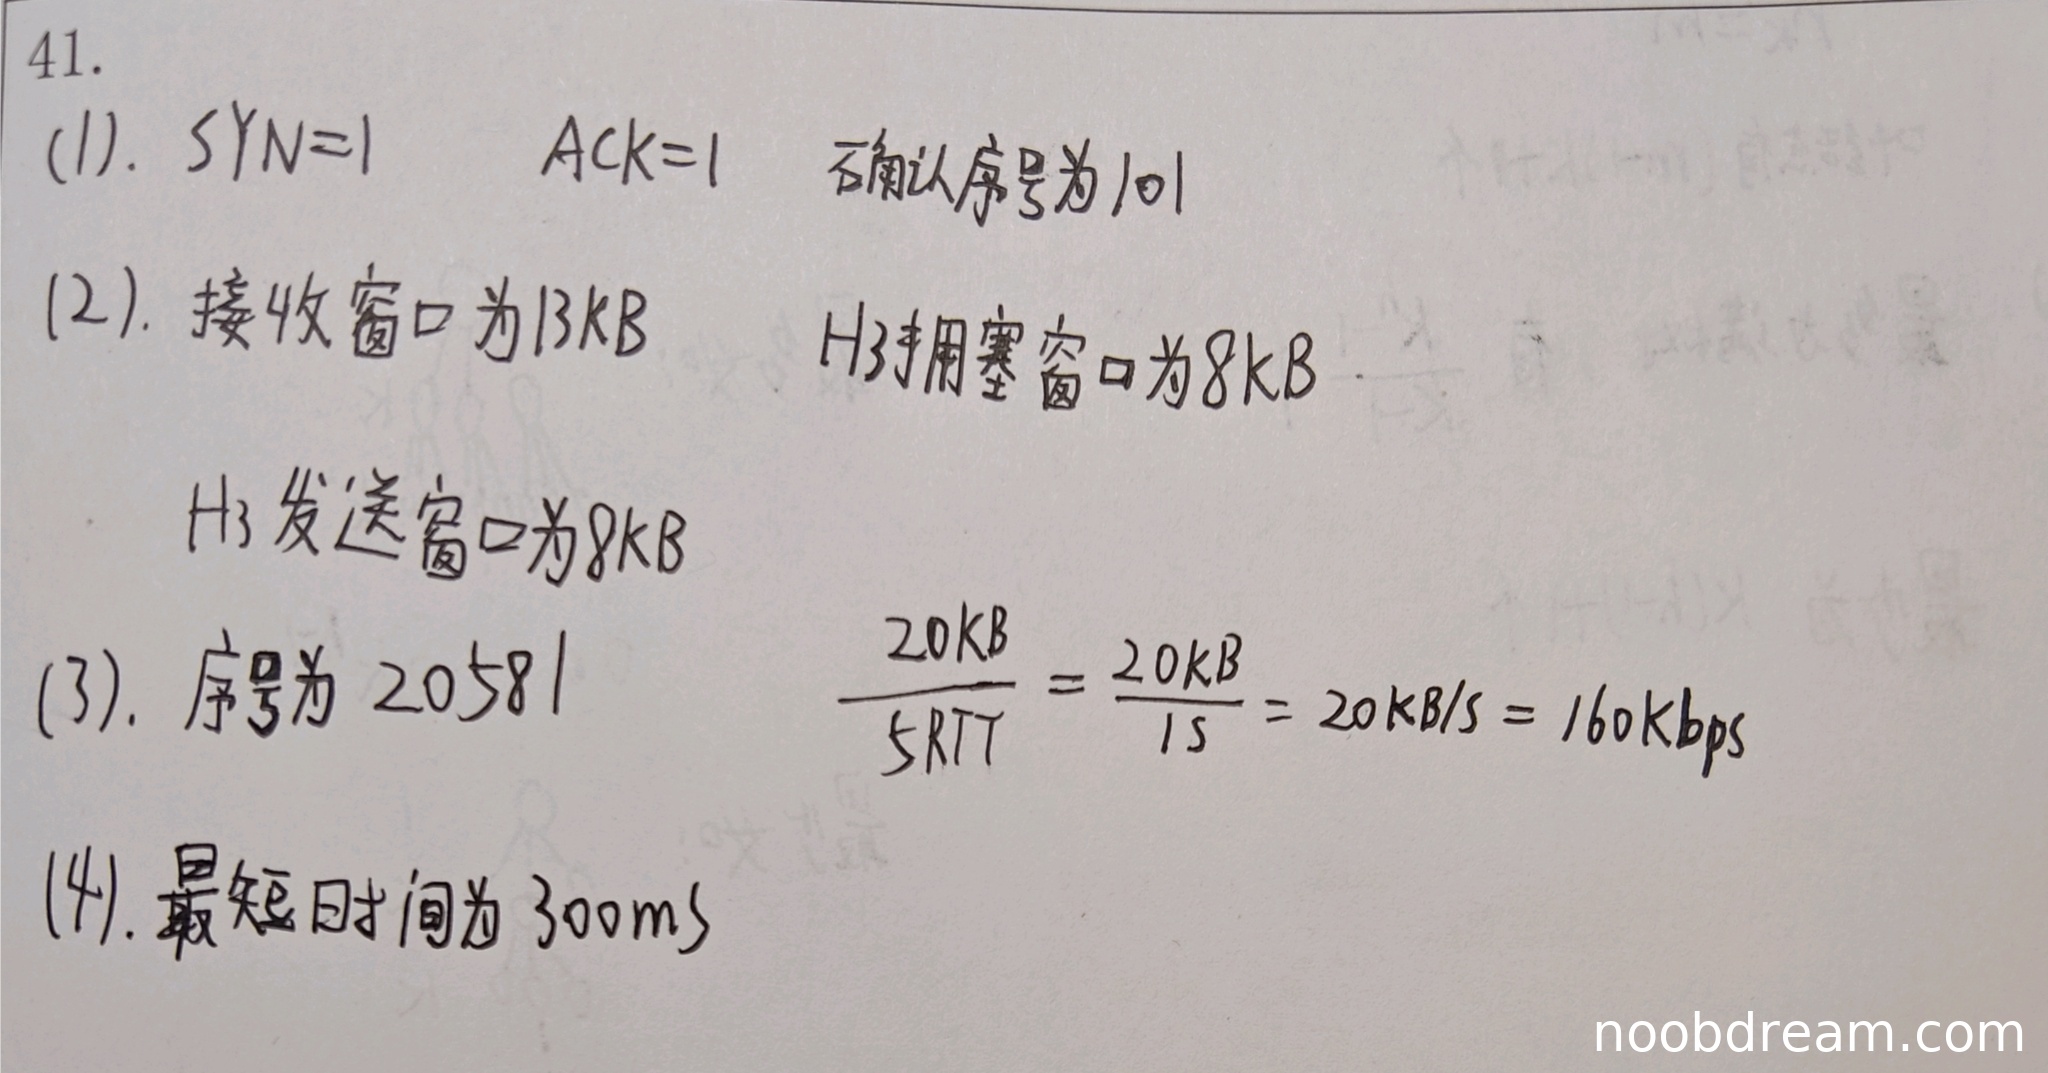 41.
(1). SYN=1 ACK=1 确认序号为101
(2). 接收窗口为13KB H3拥塞窗口为8KB
H3发送窗口为8KB
(3). 序号为 20581 20KB/5RTT = 20KB/1S = 20KB/S = 160Kbps
(4). 最短时间为 300mS
noobdream.com